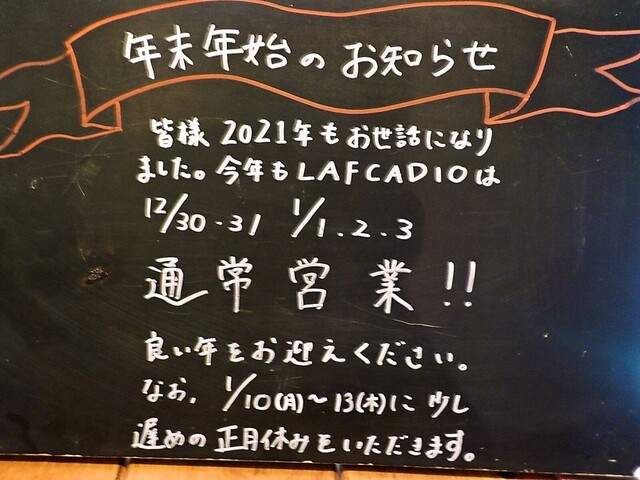 年末年始のお知らせ
皆様2021年もお世話になり
ました。今年もLAFCADIOは
12/30・31 1/1.2.3
通常営業!!
良い年をお迎えください。
なお、1/10(月)~13(木)に少し
遅めの正月休みをいただきます。